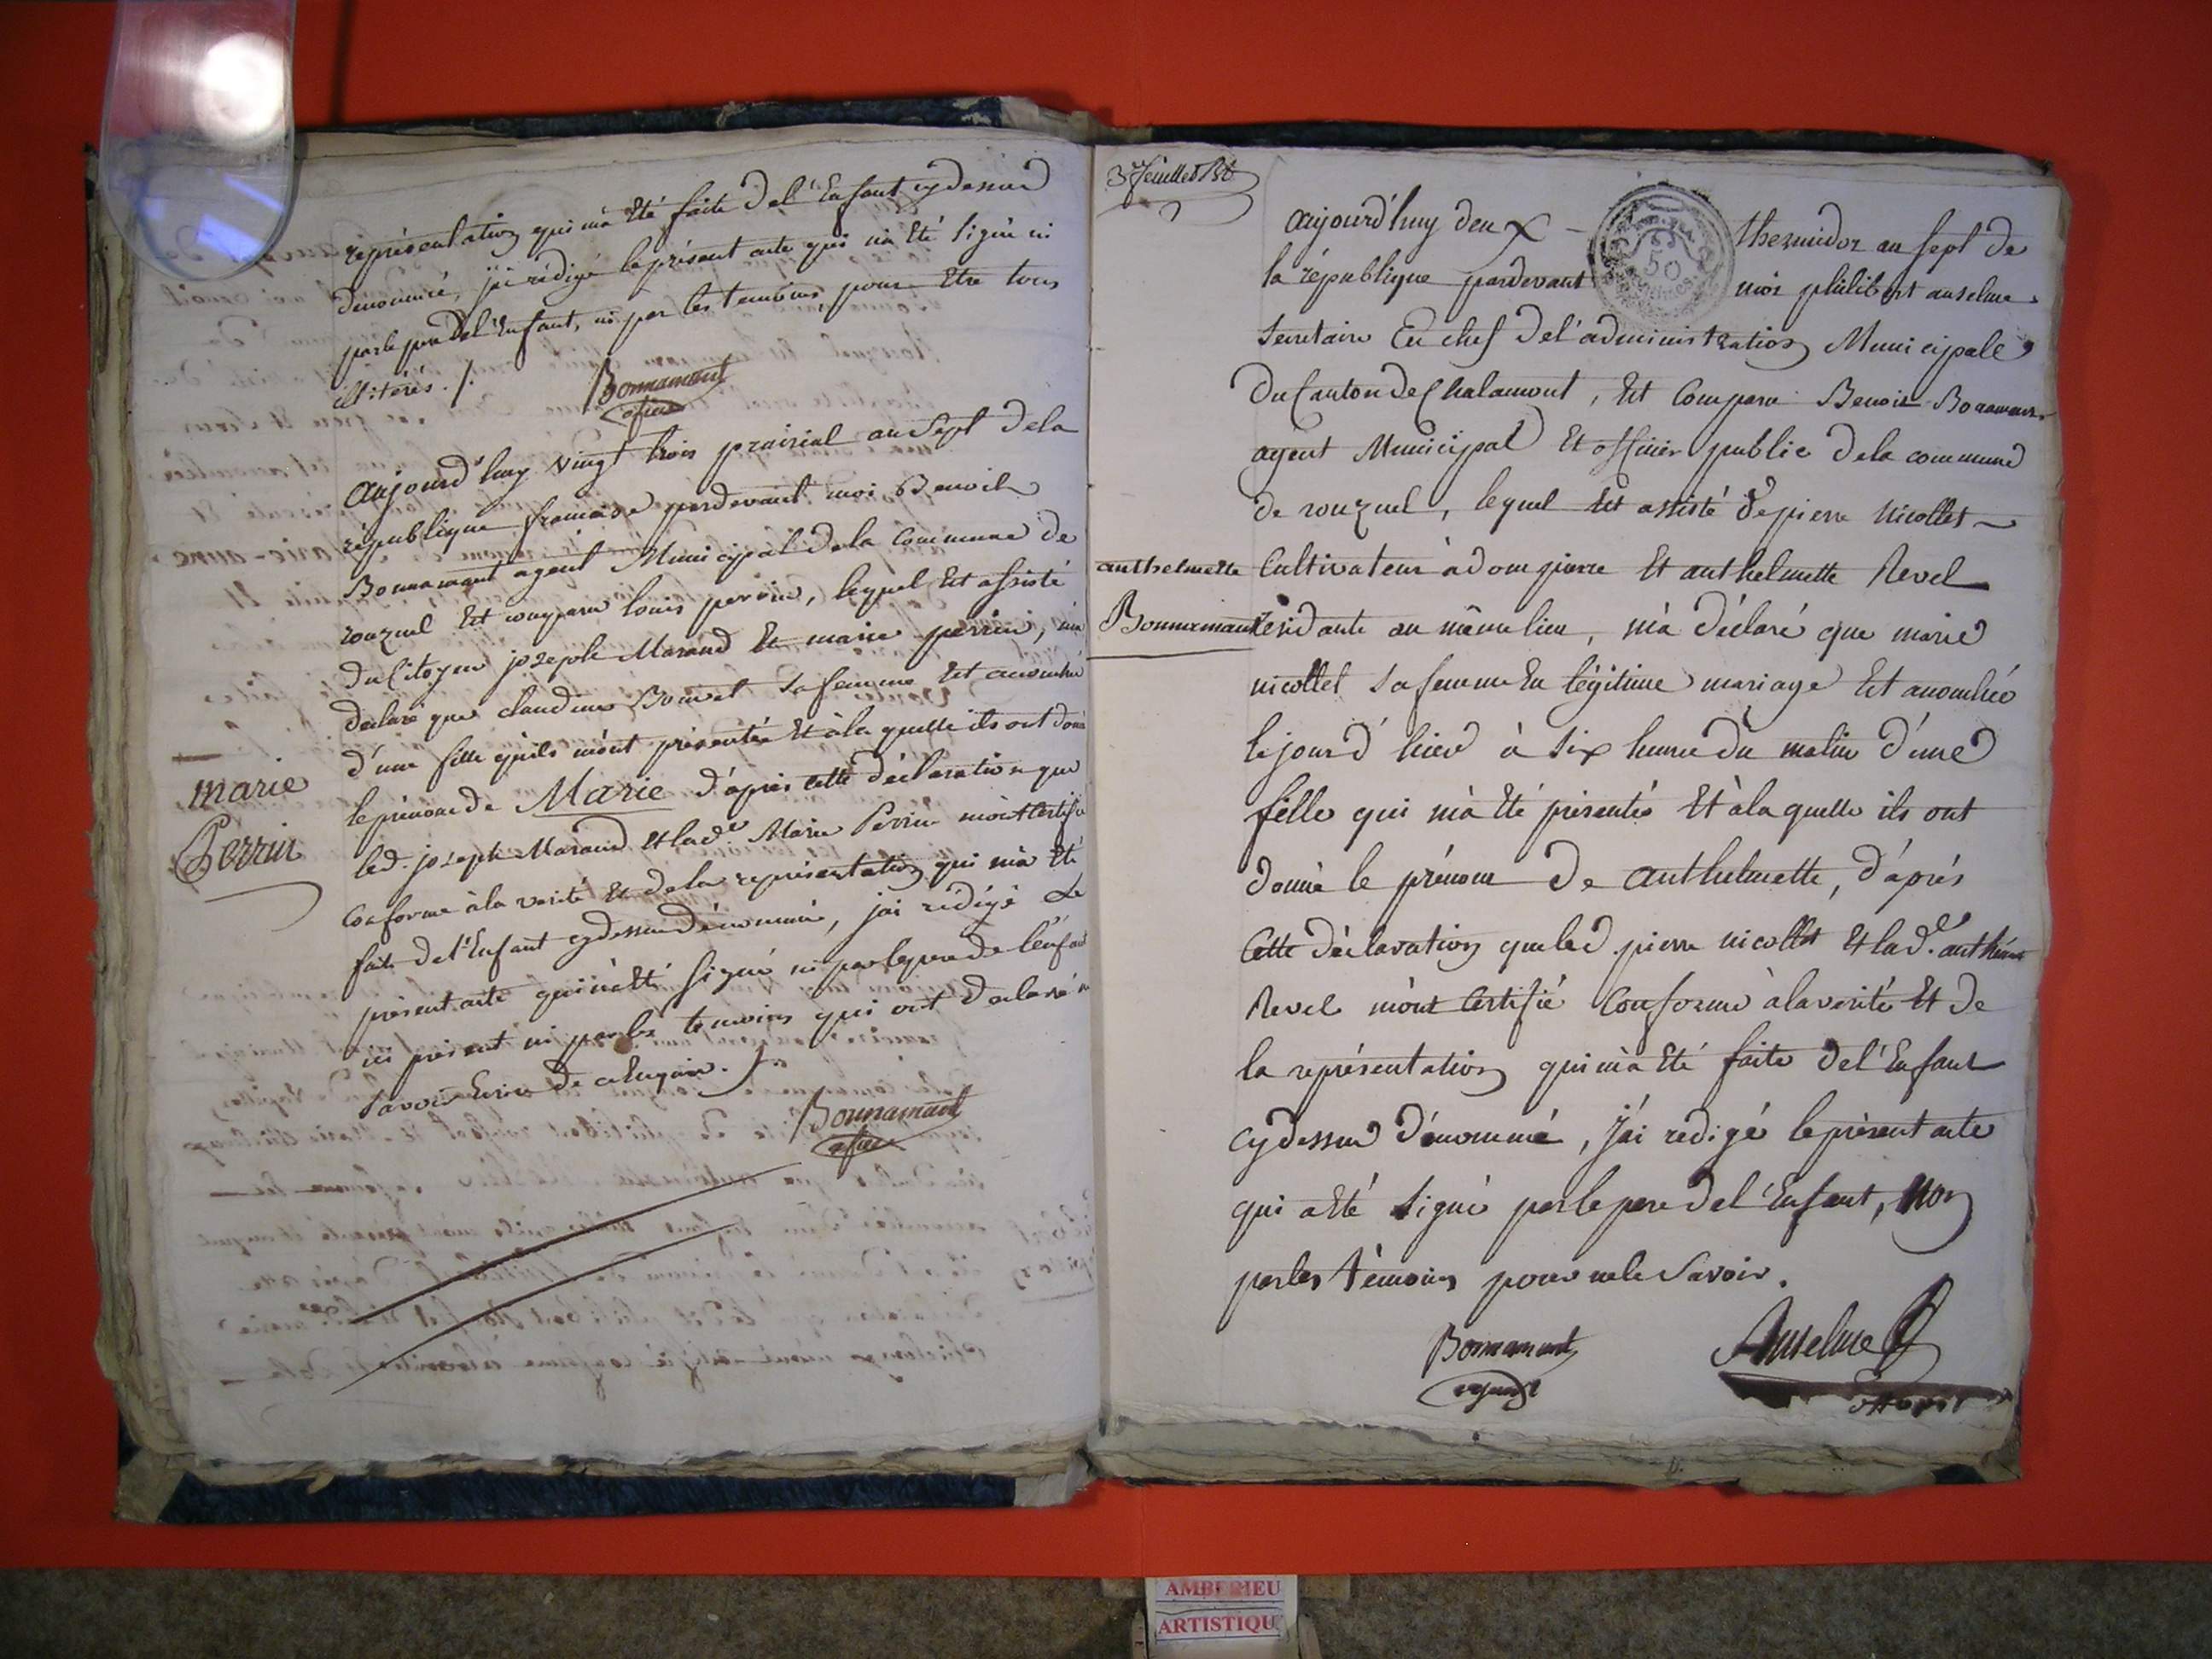 représentation qui m'a Eté faite del'Enfant cydessus
dénommé, jai rédigé le présent acte qui n'a Eté signé ni
par le pere del'Enfant, ni par les temoins, pour Etre tous
illitérés ./.
Bonnamant
agent
aujourd'huy vingt trois prairial an sept dela
république francaise pardevant moi Benoit
Bonnamant agent Municipal dela Commune de
ronzuel Est comparu louis perrin, lequel Est assisté
du Citoyen joseph Marand Et marie perrin, m'a
declaré que claudine Bouvet sa femme Est accouchée
d'une fille qu'ils m'ont présentée Et àla quelle ils ont donné
le prénom de Marie d'après cette déclaration que
led. joseph Marand Et lade. Marie Perrin m'ont Certifié
Conforme àla verité Et dela représentation qui m'a Eté
faite del'Enfant cydessus dénommé, jai rédigé Le
présent acte qui n'a Eté signé ni par le pere de l'enfant
ici présent ni par les temoins qui ont declaré ne
savoir Ecrire de ce Enquis. /.
Bonnamant
agent
marie
Perrin
3e feuillet Bt
aujourd'huy deux - thermidor an sept de
la république pardevant moi philibert anselme
secretaire En chef del'administration Municipale
du Canton de Chalamont, Est Comparu Benoit Bonnamant
agent Municipal Et officier public dela commune
de ronzuel, lequel Est assisté de pierre nicollet
Cultivateur à dompierre Et anthelmette Revel
résidante au même lieu, m'a déclaré que marie
nicollet sa femme En légitime mariage Est accouchée
le jour d'hier à six heure du matin d'une
fille qui m'a Eté présentée Et àla quelle ils ont
donné le prénom de anthelmette, d'après
Cette déclaration que led. pierre nicollet Et lade.
Revel m'ont Certifié Conforme àla vérité Et de
la représentation qui m'a Eté faite del'Enfant
cydessus dénommé, j'ai redigé le présent acte
qui a Eté signé par le pere del'Enfant, Non
par les témoins pour ne le savoir.
anthelmette
Bonnamant
50
Bonnamant
agent
Anselme
AMBERIEU
ARTISTIQU